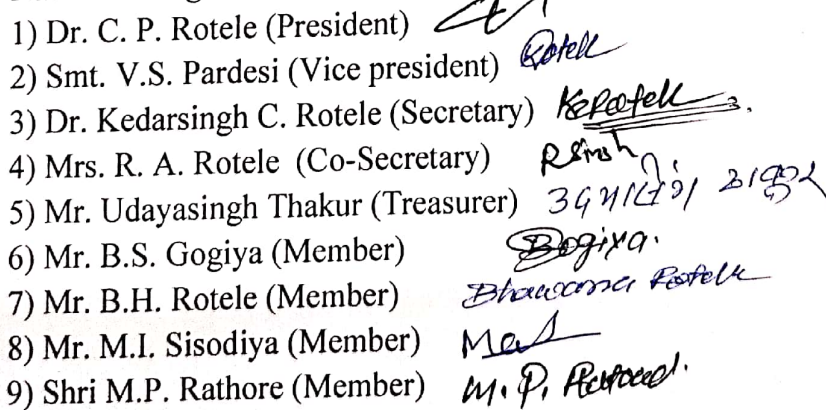 1) Dr. C. P. Rotele (President)
2) Smt. V.S. Pardesi (Vice president) Rotele
3) Dr. Kedarsingh C. Rotele (Secretary) KCRotele
4) Mrs. R. A. Rotele (Co-Secretary)
5) Mr. Udayasingh Thakur (Treasurer) उदयसिंग ठाकुर
6) Mr. B.S. Gogiya (Member)
7) Mr. B.H. Rotele (Member) Bhawana Rotele
8) Mr. M.I. Sisodiya (Member)
9) Shri M.P. Rathore (Member) M. P.